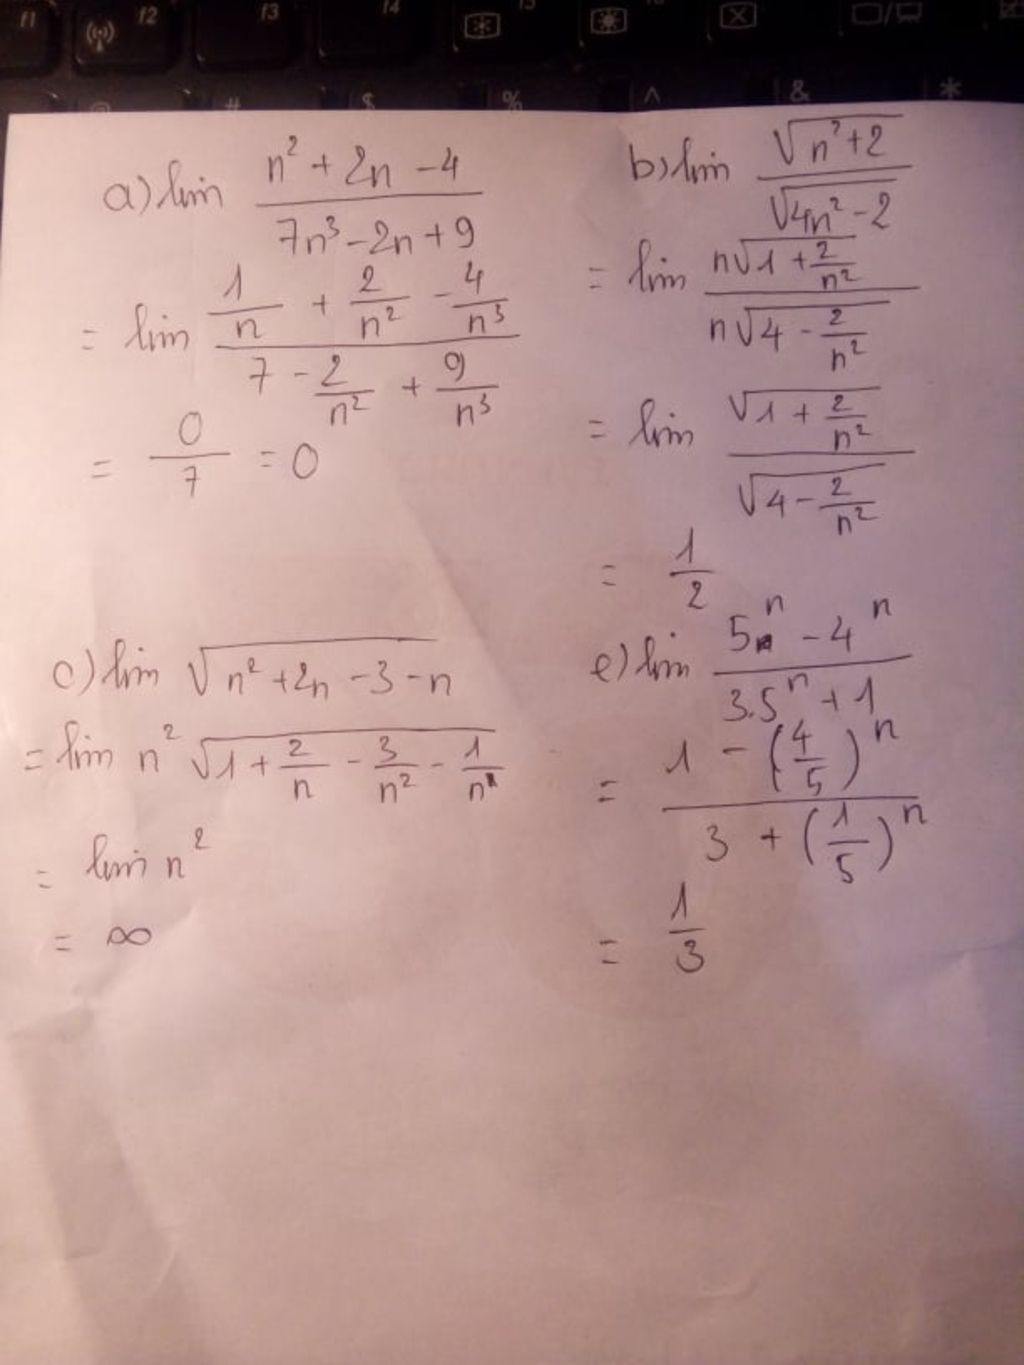 f1 f2 f3 f4 f5
@ # $ % ^ & *
a) lim n² + 2n - 4 / 7n³ - 2n + 9
= lim 1/n + 2/n² - 4/n³ / 7 - 2/n² + 9/n³
= 0/7 = 0
b) lim √n²+2 / √4n²-2
= lim n√1 + 2/n² / n√4 - 2/n²
= lim √1 + 2/n² / √4 - 2/n²
= 1/2
c) lim √n² + 2n - 3 - n
= lim n² √1 + 2/n - 3/n² - 1/n
= lim n²
= ∞
e) lim 5ⁿ - 4ⁿ / 3.5ⁿ + 1
= 1 - (4/5)ⁿ / 3 + (1/5)ⁿ
= 1/3